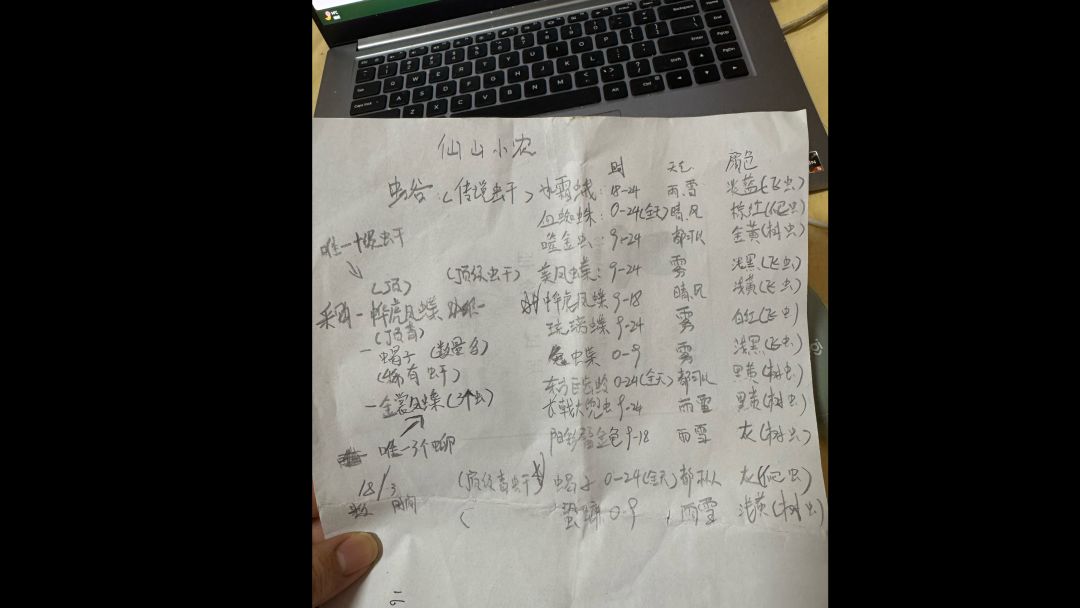 仙山小农
时 天气 颜色
虫谷:(传说虫干) 冰霜蛾: 18-24 雨.雪 淡蓝(飞虫)
血蜘蛛: 0-24(全天) 晴.风 棕红(爬虫)
噬金虫: 9-24 都可以 金黄(树虫)
唯一 虫干
(顶级虫干) 美凤蝶: 9-24 雾 浅黑(飞虫)
(顶)
采购 - 虎凤蝶
虎凤蝶 9-18 晴.风 浅黄(飞虫)
琉璃蝶 9-24 雾 白红(飞虫)
(顶青)
- 蝎子 (数量多)
蝶 0-9 雾 浅黑(飞虫)
(稀有虫干)
0-24(全天) 都可以 黑黄(树虫)
- 金裳凤蝶 (3个虫)
长戟大兜虫 9-24 雨雪 黑黄(树虫)
唯一3个
9-18 雨雪 灰(树虫)
18/3
时间
(顶级青虫干) 蝎子 0-24(全天) 都可以 灰(爬虫)
( 0-9 雨雪 浅黄(树虫)